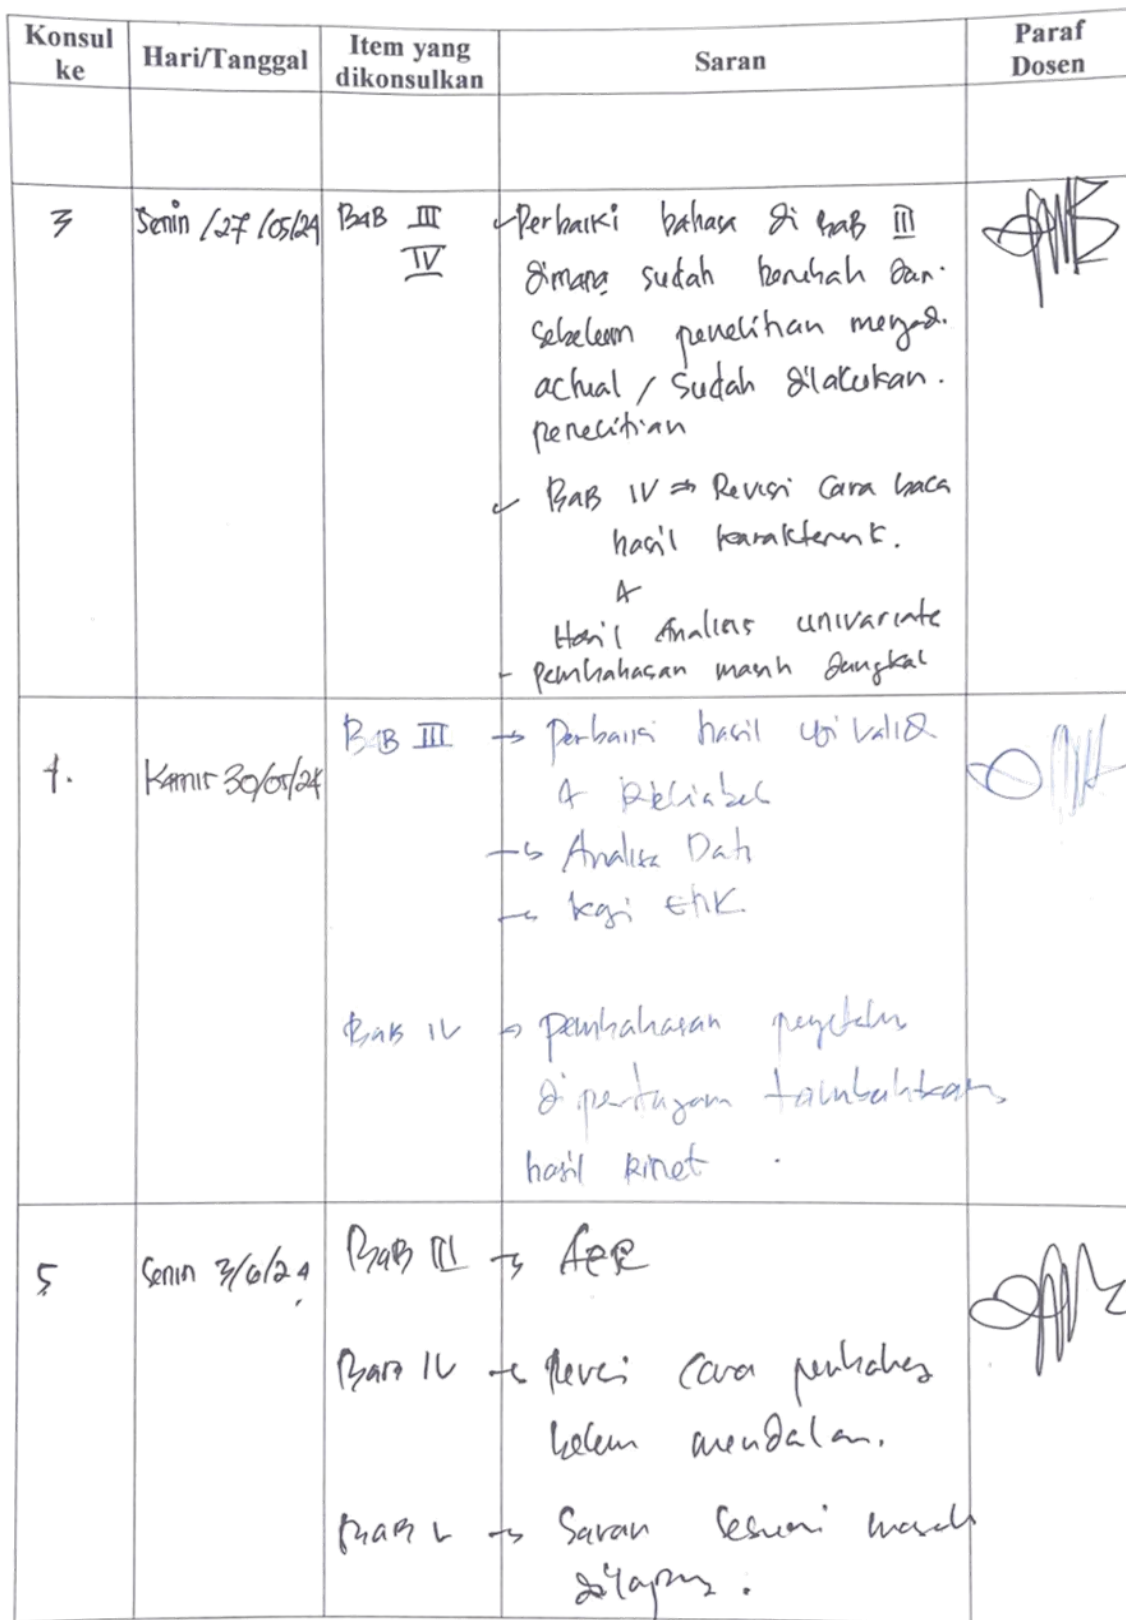 Konsul ke
Hari/Tanggal
Item yang dikonsulkan
Saran
Paraf Dosen
3
Senin / 27 / 05/24
BAB III
IV
Perbaiki bahasa di BAB III
dimana sudah berubah dari
sebelum penelitian menjadi
actual / sudah dilakukan.
penelitian
BAB IV ⇒ Revisi Cara baca
hasil karakterist.
&
Hasil Analisis univariate
- pembahasan masih dangkal
4.
Kamis 30/05/24
BAB III → Perbaiki hasil uji valid
& Reliabel
→ Analisa Data
→ Etik
BAB IV → pembahasan
tambahkan
hasil
5
Senin 3/6/24
BAB III → Acc
BAB IV → Revisi Cara pembahas
belum mendalam.
BAB V → Saran sesuai masalah
dilapang.